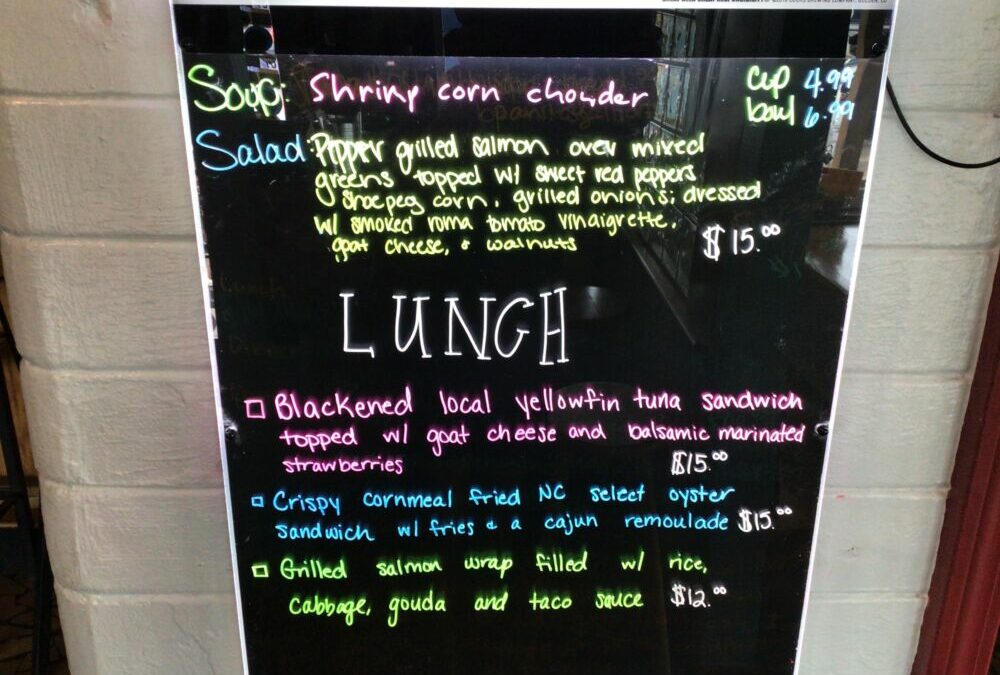 Soup: Shrimp corn chowder cup 4.99
bowl 6.99
Salad: Pepper grilled salmon over mixed
greens topped w/ sweet red peppers
shoepeg corn, grilled onions; dressed
w/ smoked roma tomato vinaigrette,
goat cheese, & walnuts $15.00
LUNCH
Blackened local yellowfin tuna sandwich
topped w/ goat cheese and balsamic marinated
strawberries $15.00
Crispy cornmeal fried NC select oyster
sandwich w/ fries & a cajun remoulade $15.00
Grilled salmon wrap filled w/ rice,
cabbage, gouda and taco sauce $12.00